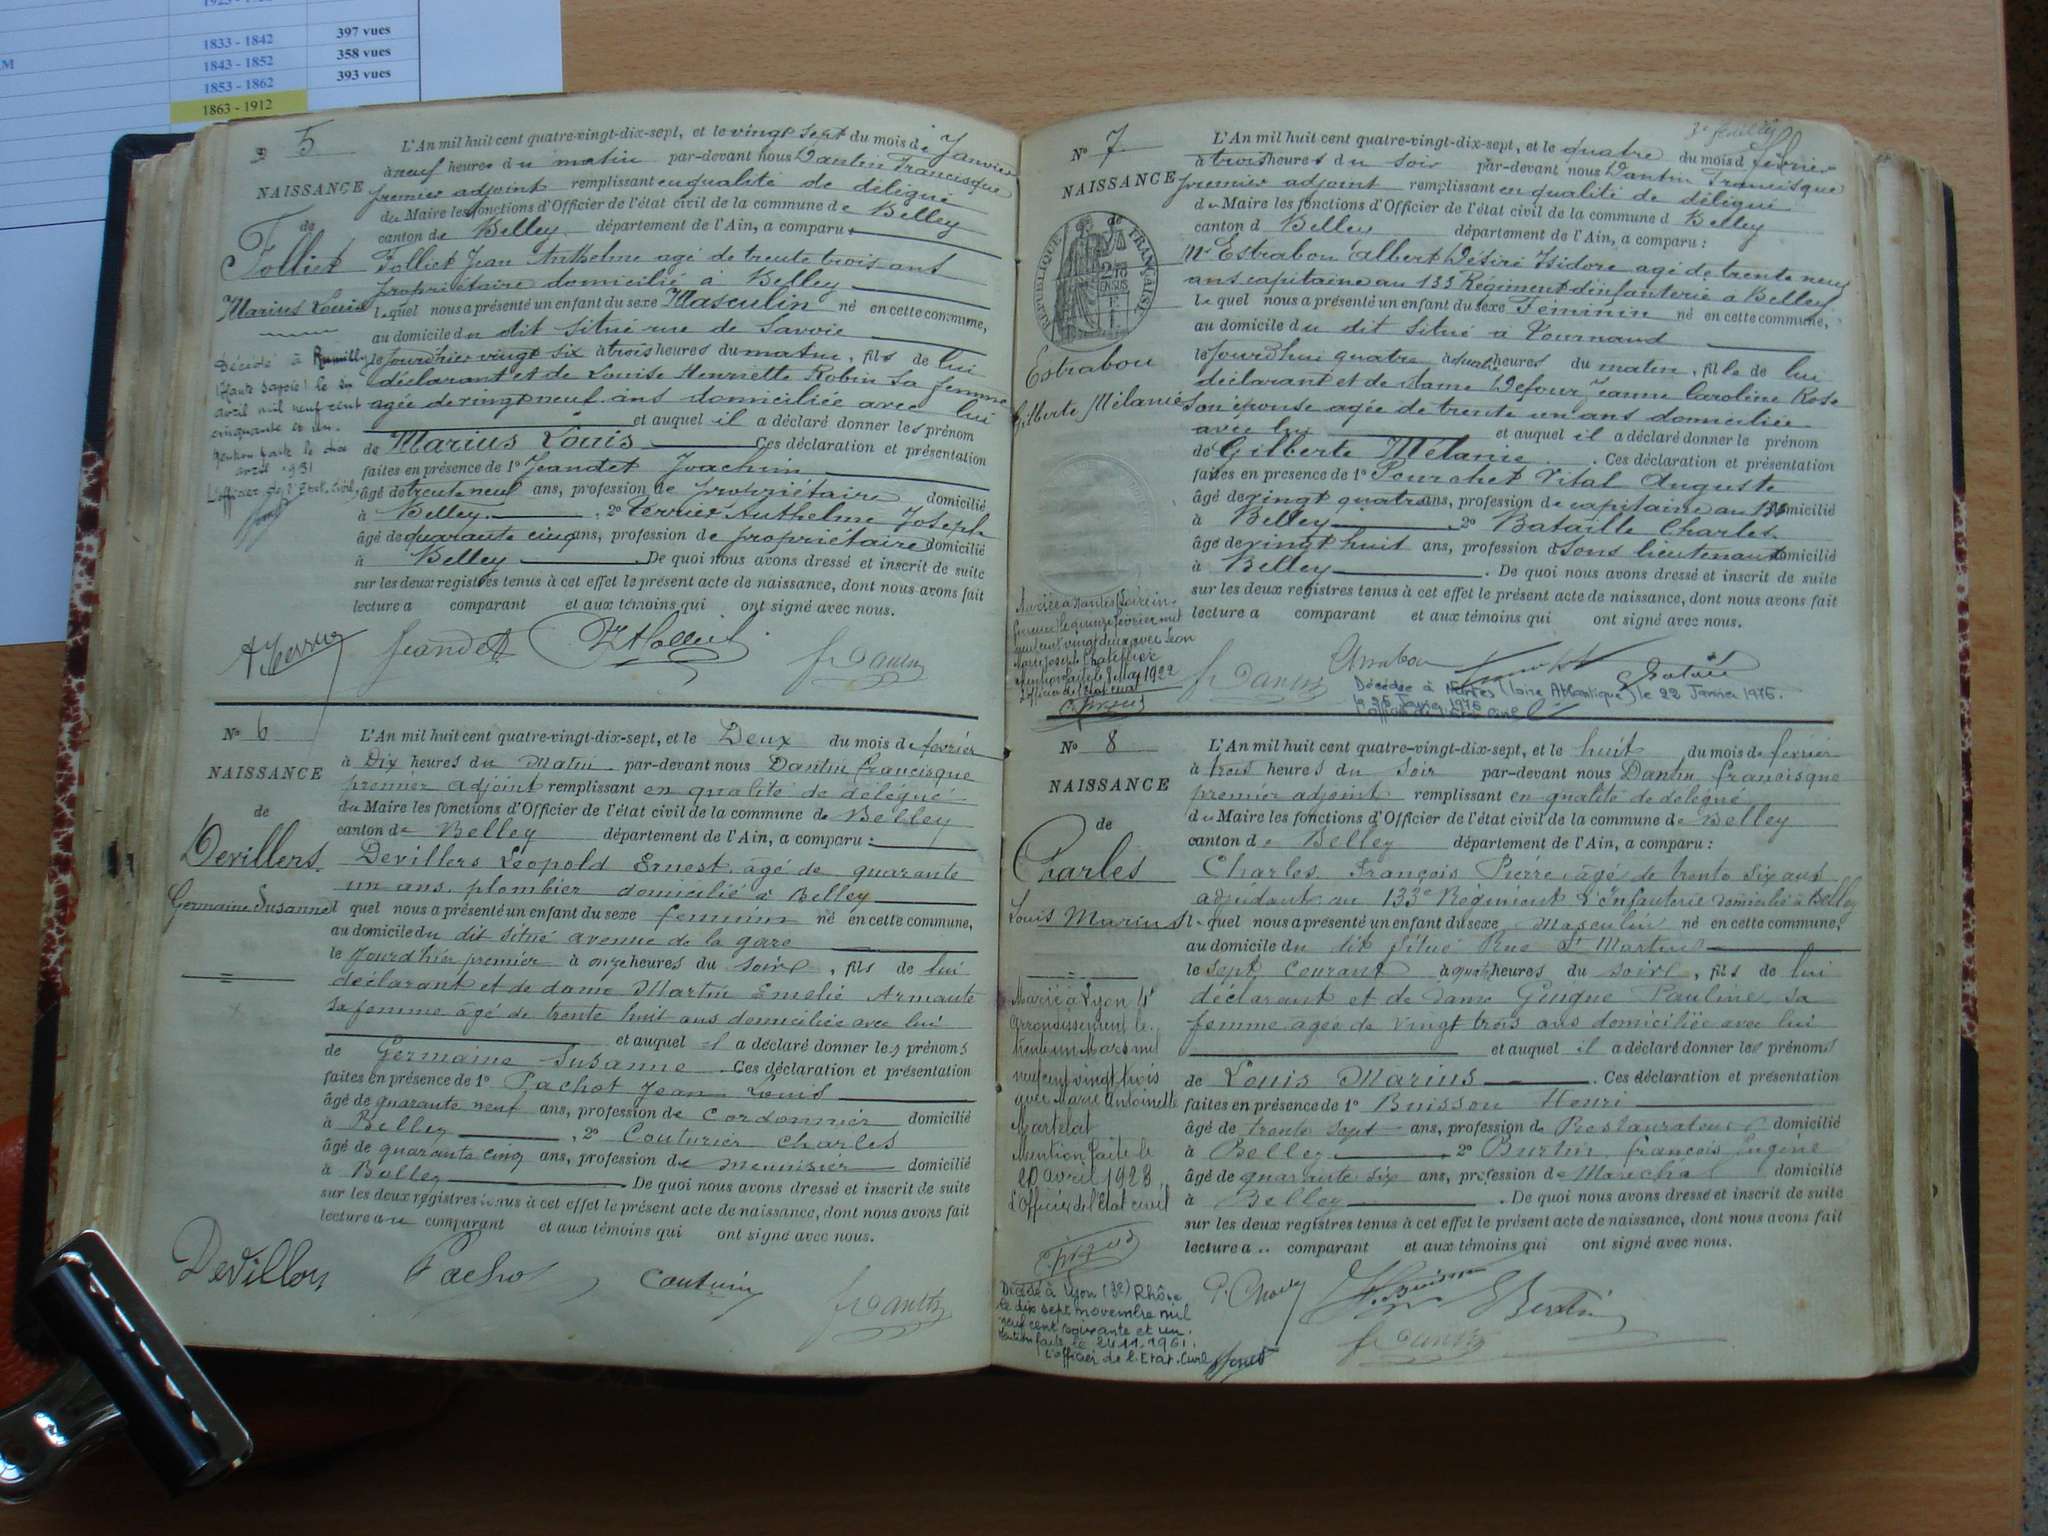 1833 - 1842 397 vues
1843 - 1852 358 vues
1853 - 1862 393 vues
1863 - 1912
5
NAISSANCE
de
Folliet
Marius Louis
Décédé à Rumilly
(Haute Savoie) le six
avril mil neuf cent
cinquante et un.
Mention faite le
avril 1951
L'officier de l'Etat-Civil,
L'An mil huit cent quatre-vingt-dix-sept, et le vingt sept du mois de Janvier
à neuf heures du matin par-devant nous Dantin Francisque
premier adjoint remplissant en qualité de délégué
du Maire les fonctions d'Officier de l'état civil de la commune de Belley
canton de Belley département de l'Ain, a comparu :
Folliet Jean Anthelme agé de trente trois ans
propriétaire domicilié à Belley
lequel nous a présenté un enfant du sexe Masculin né en cette commune,
au domicile du dit situé rue de Savoie
le jourd'hier vingt six à trois heures du matin, fils de lui
déclarant et de Louise Henriette Robin sa femme
agée de vingt neuf ans domiciliée avec lui
et auquel il a déclaré donner les prénom
de Marius Louis Ces déclaration et présentation
faites en présence de 1º Jeandet Joachim
âgé de trente neuf ans, profession de propriétaire domicilié
à Belley , 2º Verrier Anthelme Joseph
âgé de quarante cinq ans, profession de propriétaire domicilié
à Belley De quoi nous avons dressé et inscrit de suite
sur les deux registres tenus à cet effet le présent acte de naissance, dont nous avons fait
lecture a comparant et aux témoins qui ont signé avec nous.
Jeandet
fr Dantin
Nº 6
NAISSANCE
de
Devillers
Germaine Susanne
L'An mil huit cent quatre-vingt-dix-sept, et le Deux du mois de fevrier
à Dix heures du Matin par-devant nous Dantin francisque
premier adjoint remplissant en qualité de délégué
du Maire les fonctions d'Officier de l'état civil de la commune de Belley
canton de Belley département de l'Ain, a comparu :
Devillers Léopold Ernest âgé de quarante
un ans plombier domicilié à Belley
lequel nous a présenté un enfant du sexe feminin né en cette commune,
au domicile du dit situé avenue de la gare
le Jourdhier premier à onze heures du soir, fils de lui
déclarant et de dame Martin Emelie Armante
sa femme âgé de trente huit ans domiciliée avec lui
et auquel il a déclaré donner les prénoms
de Germaine Susanne Ces déclaration et présentation
faites en présence de 1º Pachot Jean Louis
âgé de quarante neuf ans, profession de Cordonnier domicilié
à Belley , 2º Couturier Charles
âgé de quarante cinq ans, profession de menuisier domicilié
à Belley De quoi nous avons dressé et inscrit de suite
sur les deux registres tenus à cet effet le présent acte de naissance, dont nous avons fait
lecture au comparant et aux témoins qui ont signé avec nous.
Pachot
fr Dantin
Nº 7
NAISSANCE
de
RÉPUBLIQUE FRANÇAISE
Estrabou
Gilberte Mélanie
Mariée à Nantes (Loire in-
férieure) le quinze février mil
neuf cent vingt deux avec Léon
Marie Joseph Chatellier
mention faite le 8 Mai 1922
L'officier de l'état civil
L'An mil huit cent quatre-vingt-dix-sept, et le quatre du mois d février
à trois heures du soir par-devant nous Dantin Francisque
premier adjoint remplissant en qualité de délégué
du Maire les fonctions d'Officier de l'état civil de la commune d Belley
canton d Belley département de l'Ain, a comparu :
Mr Estrabou Albert Désiré Isidore agé de trente neuf
ans capitaine au 133 Régiment d'infanterie à Belley
lequel nous a présenté un enfant du sexe Feminin né en cette commune,
au domicile du dit situé a Tournand
le jourd'hui quatre à quatre heures du matin, fille de lui
déclarant et de dame Defour Jeanne Caroline Rose
son épouse agée de trente un ans domiciliée
avec lui et auquel il a déclaré donner le prénom
de Gilberte Mélanie . Ces déclaration et présentation
faites en présence de 1º Pourchet Vital Auguste
âgé de vingt quatre ans, profession de capitaine au 133 domicilié
à Belley , 2º Bataille Charles
âgé de vingt huit ans, profession d Sous lieutenant domicilié
à Belley . De quoi nous avons dressé et inscrit de suite
sur les deux registres tenus à cet effet le présent acte de naissance, dont nous avons fait
lecture a comparant et aux témoins qui ont signé avec nous.
Estrabou
fr Dantin
Décédée à Nantes (Loire Atlantique) le 22 Janvier 1976.
le 26 Janvier 1976
L'officier de l'Etat Civil
Nº 8
NAISSANCE
de
Charles
Louis Marius
Marié à Lyon 4e
arrondissement le
trente un Mars mil
neuf cent vingt trois
avec Marie Antoinette
Martelat
Mention faite le
20 avril 1923
L'Officier de l'Etat civil
Décédé à Lyon (3e) Rhône
le dix sept novembre mil
neuf cent soixante et un.
Mention faite le 24.11.1961.
L'officier de l'Etat-Civil
L'An mil huit cent quatre-vingt-dix-sept, et le huit du mois de fevrier
à trois heures du soir par-devant nous Dantin francisque
premier adjoint remplissant en qualité de délégué
du Maire les fonctions d'Officier de l'état civil de la commune de Belley
canton de Belley département de l'Ain, a comparu :
Charles François Pierre âgé de trente six ans
adjudant au 133e Régiment d'Infanterie domicilié à Belley
lequel nous a présenté un enfant du sexe Masculin né en cette commune,
au domicile du dit situé Rue St Martin
le sept courant à quatre heures du soir, fils de lui
déclarant et de dame Guigue Pauline sa
femme agée de vingt trois ans domiciliée avec lui
et auquel il a déclaré donner les prénoms
de Louis Marius . Ces déclaration et présentation
faites en présence de 1º Buisson Henri
âgé de trente sept ans, profession de Restaurateur domicilié
à Belley 2º Burtin françois Eugène
âgé de quarante six ans, profession de Maréchal domicilié
à Belley . De quoi nous avons dressé et inscrit de suite
sur les deux registres tenus à cet effet le présent acte de naissance, dont nous avons fait
lecture a comparant et aux témoins qui ont signé avec nous.
fr Dantin